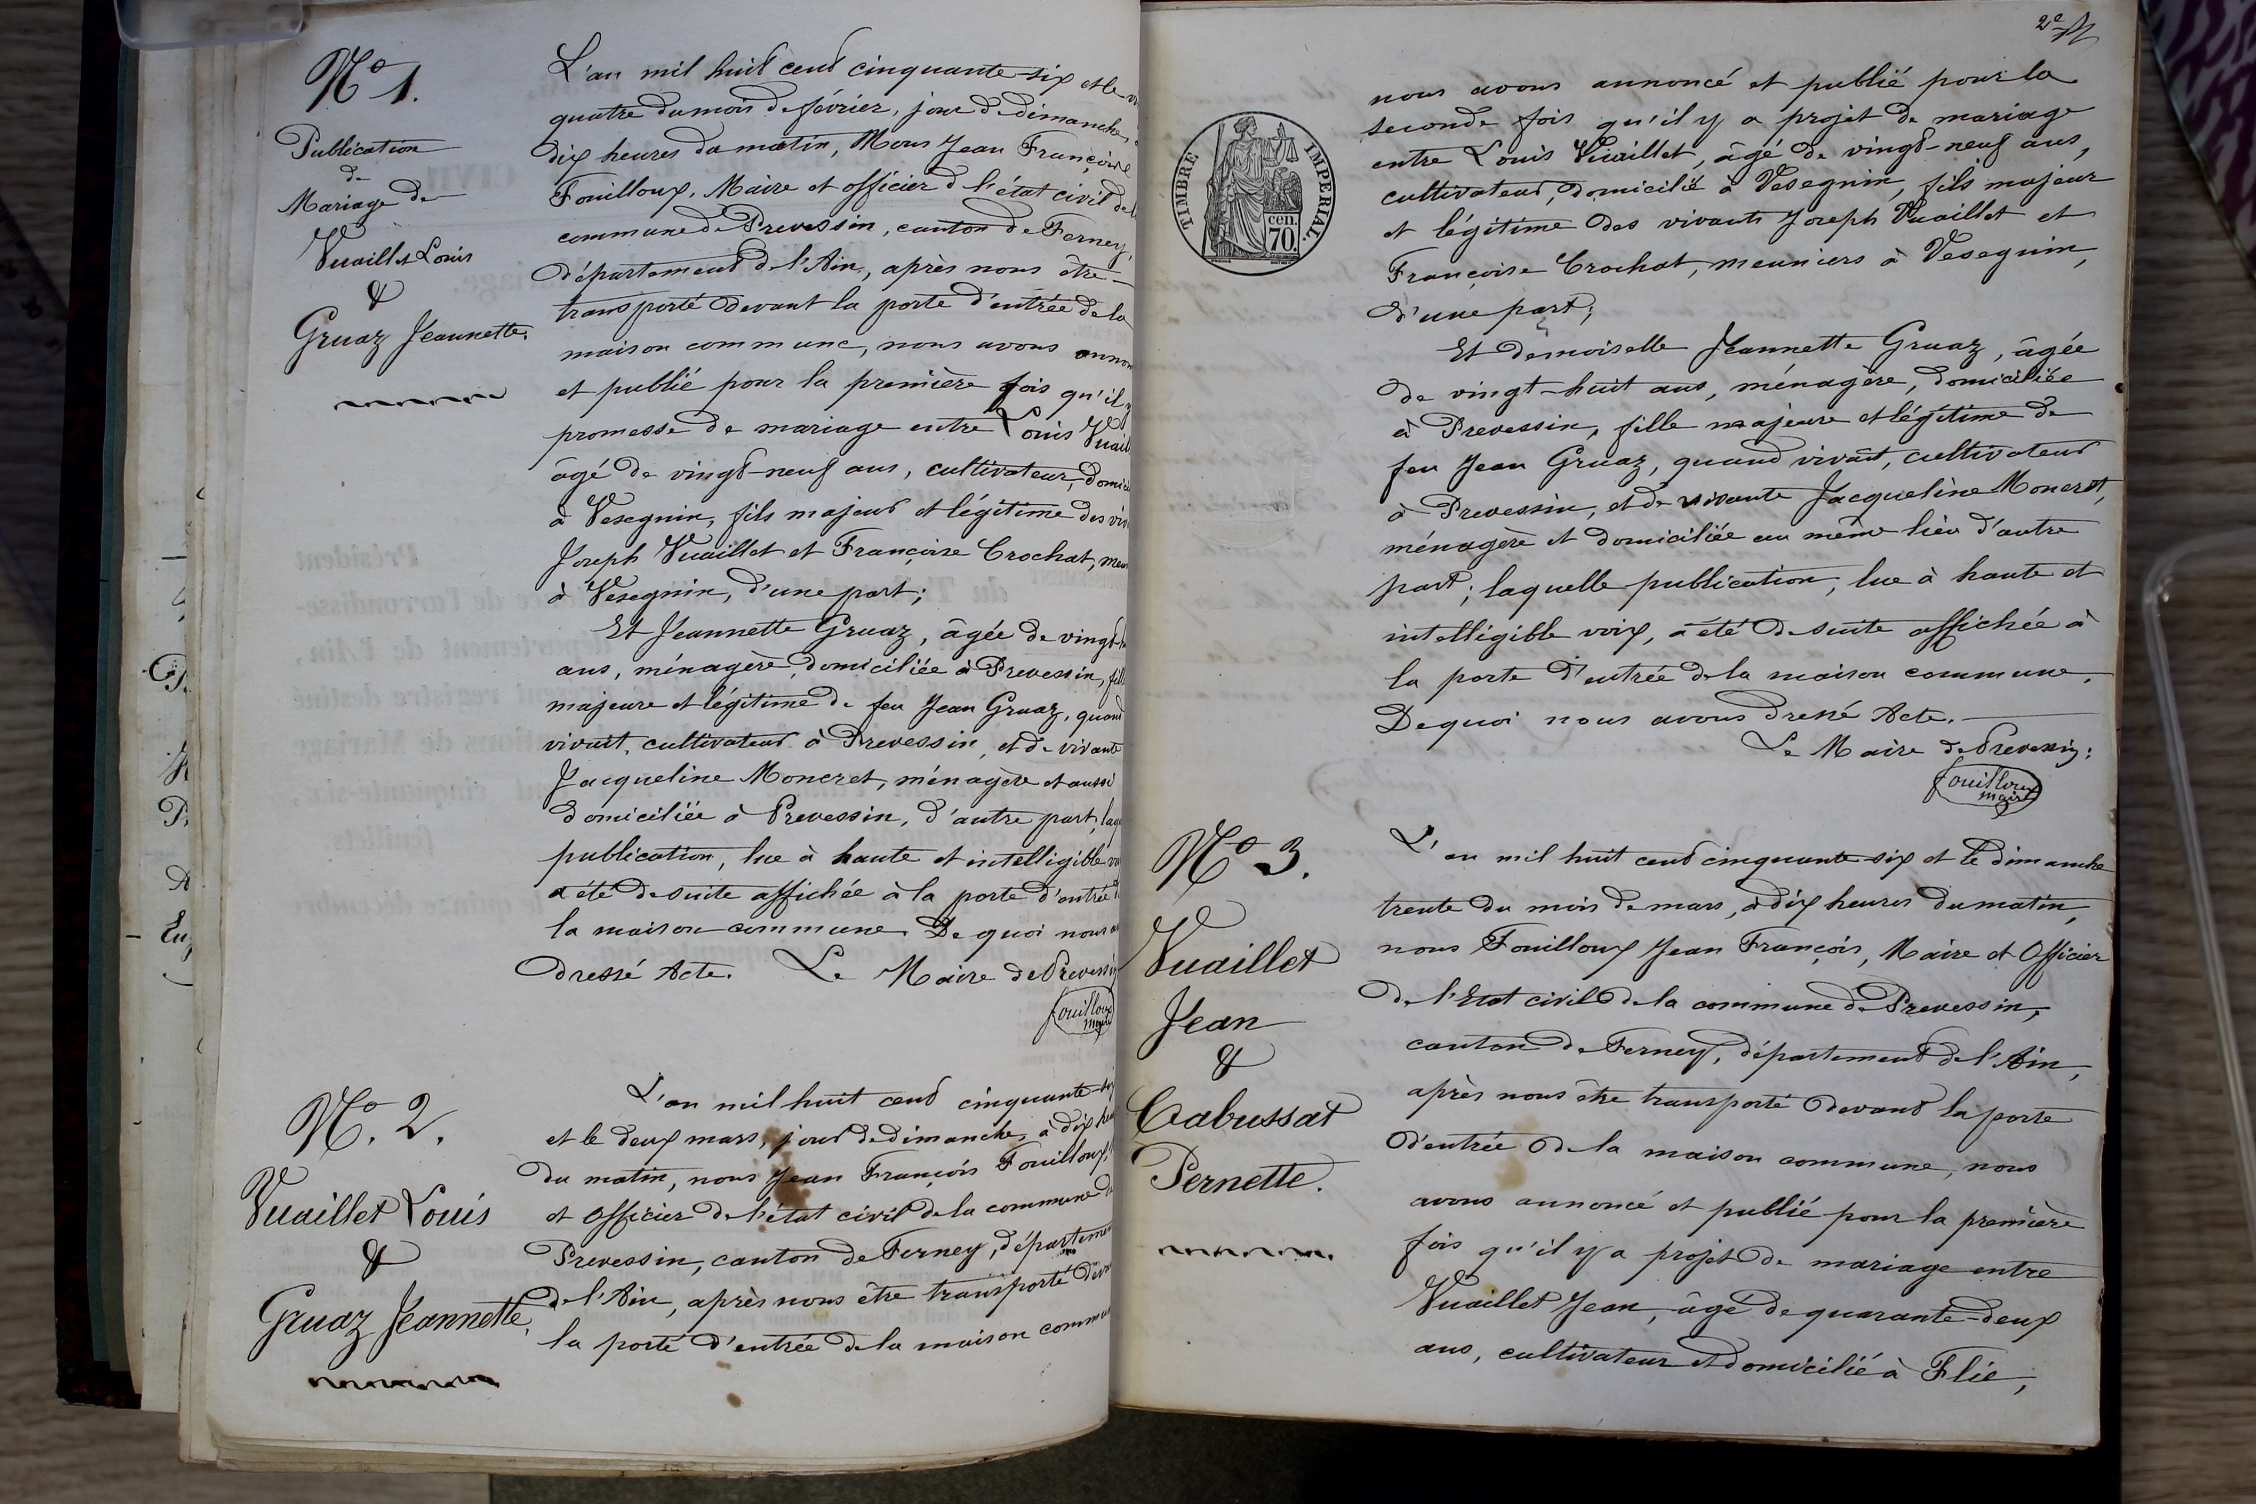 N° 1.
Publication
de
Mariage de
Vuaillet Louis
&
Gruaz Jeannette.
L'an mil huit cent cinquante-six et le
quatre du mois de février, jour de dimanche,
dix heures du matin, Nous Jean François
Fouilloux, Maire et officier de l'état civil de
commune de Prevessin, canton de Ferney,
département de l'Ain, après nous être
transporté devant la porte d'entrée de la
maison commune, nous avons annon
et publié pour la première fois qu'il y
promesse de mariage entre Louis Vuail
âgé de vingt-neuf ans, cultivateur, domici
à Vesegnin, fils majeur et légitime des viv
Joseph Vuaillet et Françoise Crochat, meu
à Vesegnin, d'une part;
Et Jeannette Gruaz, âgée de vingt-
ans, ménagère, domiciliée à Prevessin, fill
majeure et légitime de feu Jean Gruaz, quand
vivait, cultivateur à Prevessin, et de vivante
Jacqueline Moncret, ménagère et aussi
domiciliée à Prevessin, d'autre part, laq
publication, lue à haute et intelligible vo
a été de suite affichée à la porte d'entrée
la maison commune. De quoi nous
dressé Acte. Le Maire de Prevessin
fouilloux
maire
N°. 2.
Vuaillet Louis
&
Gruaz Jeannette.
L'an mil huit cent cinquante-six
et le deux mars, jour de dimanche, à dix heu
du matin, nous Jean François Fouilloux,
et Officier de l'état civil de la commune de
Prevessin, canton de Ferney, départemen
de l'Ain, après nous être transporté deva
la porte d'entrée de la maison commun
2e
TIMBRE IMPERIAL.
cen.
70.
nous avons annoncé et publié pour la
seconde fois qu'il y a projet de mariage
entre Louis Vuaillet, âgé de vingt-neuf ans,
cultivateur, domicilié à Vesegnin, fils majeur
et légitime des vivants Joseph Vuaillet et
Françoise Crochat, meuniers à Vesegnin,
d'une part;
Et demoiselle Jeannette Gruaz, âgée
de vingt-huit ans, ménagère, domiciliée
à Prevessin, fille majeure et légitime de
feu Jean Gruaz, quand vivait, cultivateur
à Prevessin, et de vivante Jacqueline Moncret,
ménagère et domiciliée au même lieu d'autre
part; laquelle publication, lue à haute et
intelligible voix, a été de suite affichée à
la porte d'entrée de la maison commune.
De quoi nous avons dressé Acte.
Le Maire de Prevessin:
fouilloux
maire
N° 3.
Vuaillet
Jean
&
Cabussat
Pernette.
L'an mil huit cent cinquante-six et le dimanche
trente du mois de mars, à dix heures du matin,
nous Fouilloux Jean François, Maire et Officier
de l'Etat civil de la commune de Prevessin,
canton de Ferney, département de l'Ain,
après nous être transporté devant la porte
d'entrée de la maison commune, nous
avons annoncé et publié pour la première
fois qu'il y a projet de mariage entre
Vuaillet Jean, âgé de quarante-deux
ans, cultivateur et domicilié à Flie,